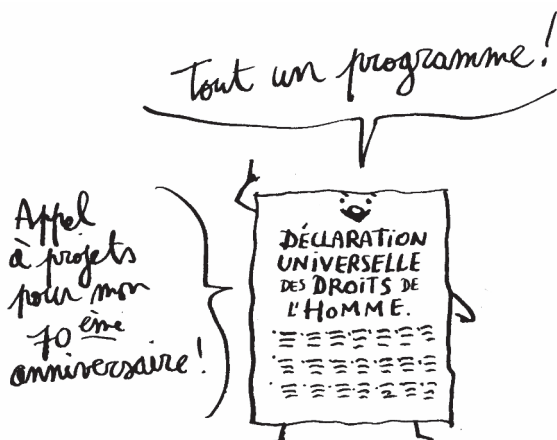 Tout un programme!
Appel
à projets
pour mon
70ème
anniversaire!
DÉCLARATION
UNIVERSELLE
DES DROITS DE
L'HOMME.